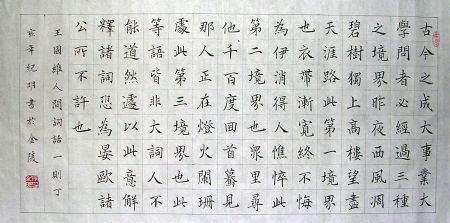 古今之成大事業大
學問者必經過三種
之境界昨夜西風凋
碧樹獨上高樓望盡
天涯路此第一境界
也衣帶漸寬終不悔
為伊消得人憔悴此
第二境界也衆里尋
他千百度回首驀見
那人正在燈火闌珊
處此第三境界也此
等語皆非大詞人不
能道然遽以此意解
釋諸詞恐為晏歐諸
公所不許也
王國維人間詞話一則丁
亥年紀明書於金陵